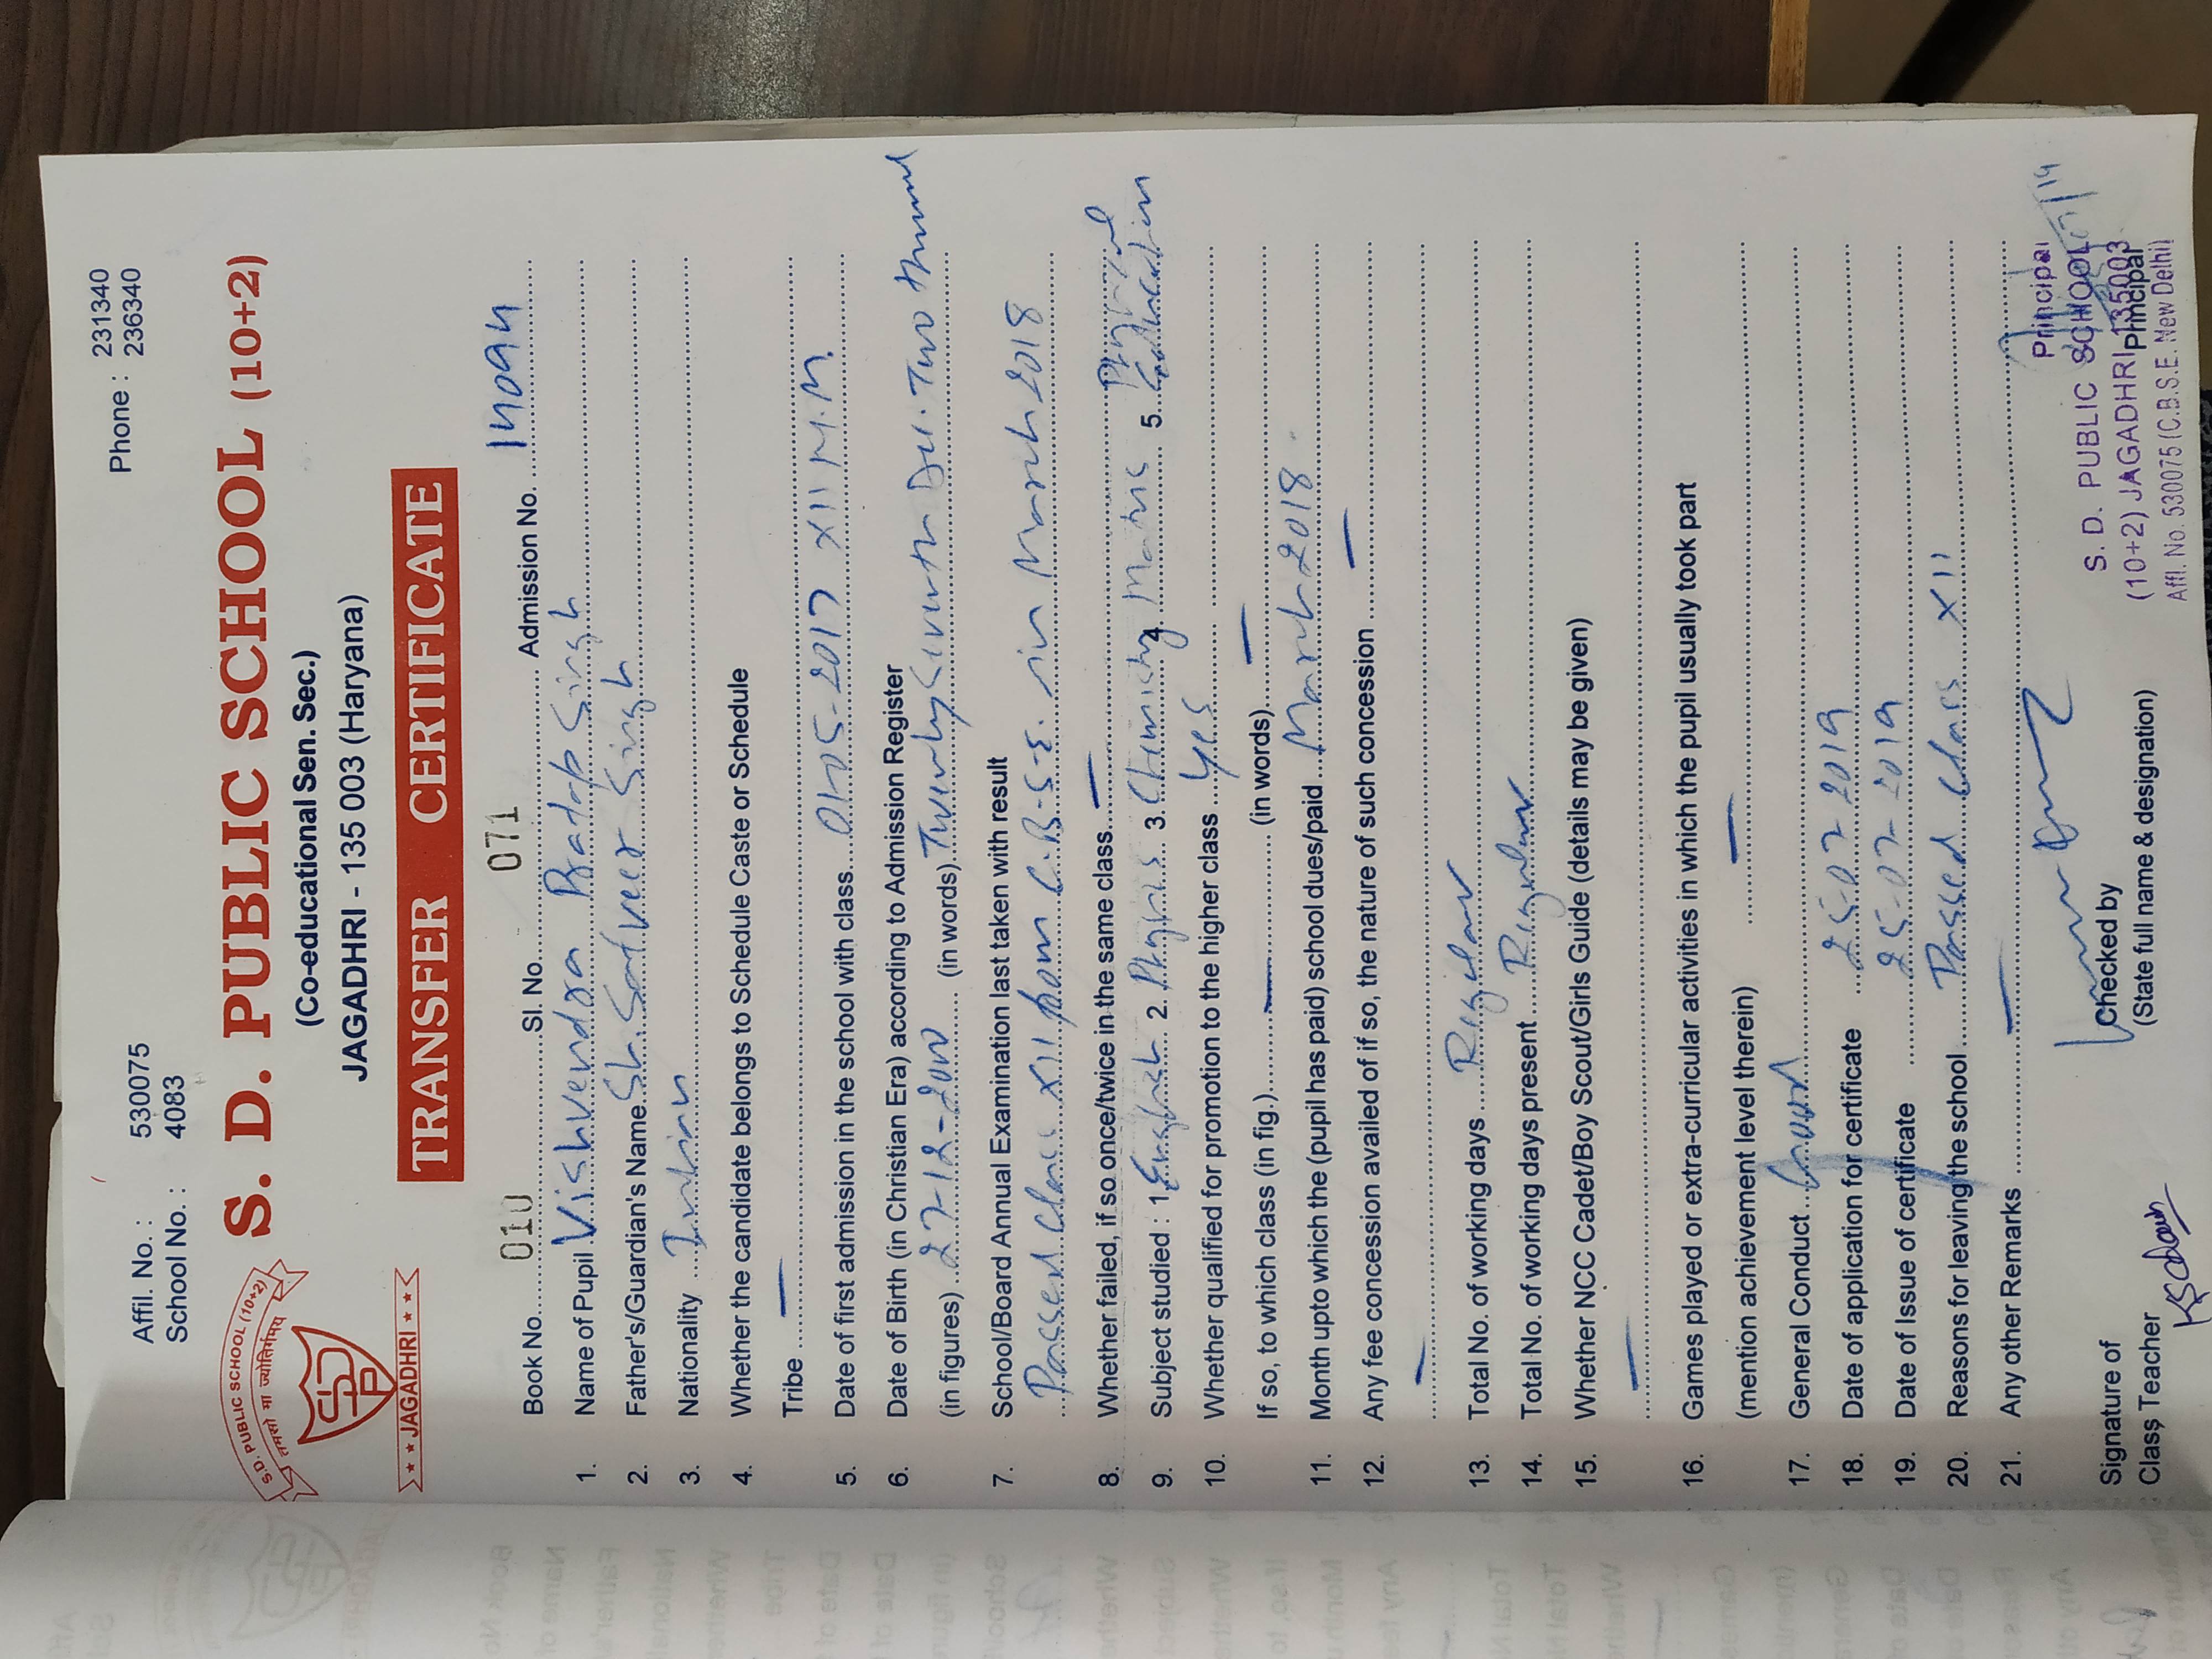 Affil. No. : 530075 Phone : 231340
School No. : 4083 236340
S.D. PUBLIC SCHOOL (10+2)
तमसो मा ज्योतिर्गमय
SDP
★ ★ JAGADHRI ★ ★
S. D. PUBLIC SCHOOL (10+2)
(Co-educational Sen. Sec.)
JAGADHRI - 135 003 (Haryana)
TRANSFER CERTIFICATE
Book No. 010 Sl. No. 071 Admission No. 14094
1. Name of Pupil Vishvendra Pratap Singh
2. Father's/Guardian's Name Sh. Satveer Singh
3. Nationality Indian
4. Whether the candidate belongs to Schedule Caste or Schedule
Tribe —
5. Date of first admission in the school with class 01-05-2017 XII M.M.
6. Date of Birth (in Christian Era) according to Admission Register
(in figures) 27-12-2000 (in words) Twenty Seventh Dec. Two
7. School/Board Annual Examination last taken with result
Passed Class XII from C.B.S.E. in March 2018
8. Whether failed, if so once/twice in the same class —
9. Subject studied : 1. English 2. Physics 3. Chemistry 4. Maths 5. Physical Education
10. Whether qualified for promotion to the higher class Yes
If so, to which class (in fig.) — (in words) —
11. Month upto which the (pupil has paid) school dues/paid March 2018
12. Any fee concession availed of if so, the nature of such concession —
—
13. Total No. of working days Regular
14. Total No. of working days present Regular
15. Whether NCC Cadet/Boy Scout/Girls Guide (details may be given)
—
16. Games played or extra-curricular activities in which the pupil usually took part
(mention achievement level therein) —
17. General Conduct Good
18. Date of application for certificate 25-07-2019
19. Date of Issue of certificate 25-07-2019
20. Reasons for leaving the school Passed Class XII
21. Any other Remarks —
Signature of Checked by Principal
Class Teacher (State full name & designation)
Principal
S. D. PUBLIC SCHOOL
(10+2) JAGADHRI 135003
Affl. No. 530075 (C.B.S.E. New Delhi)